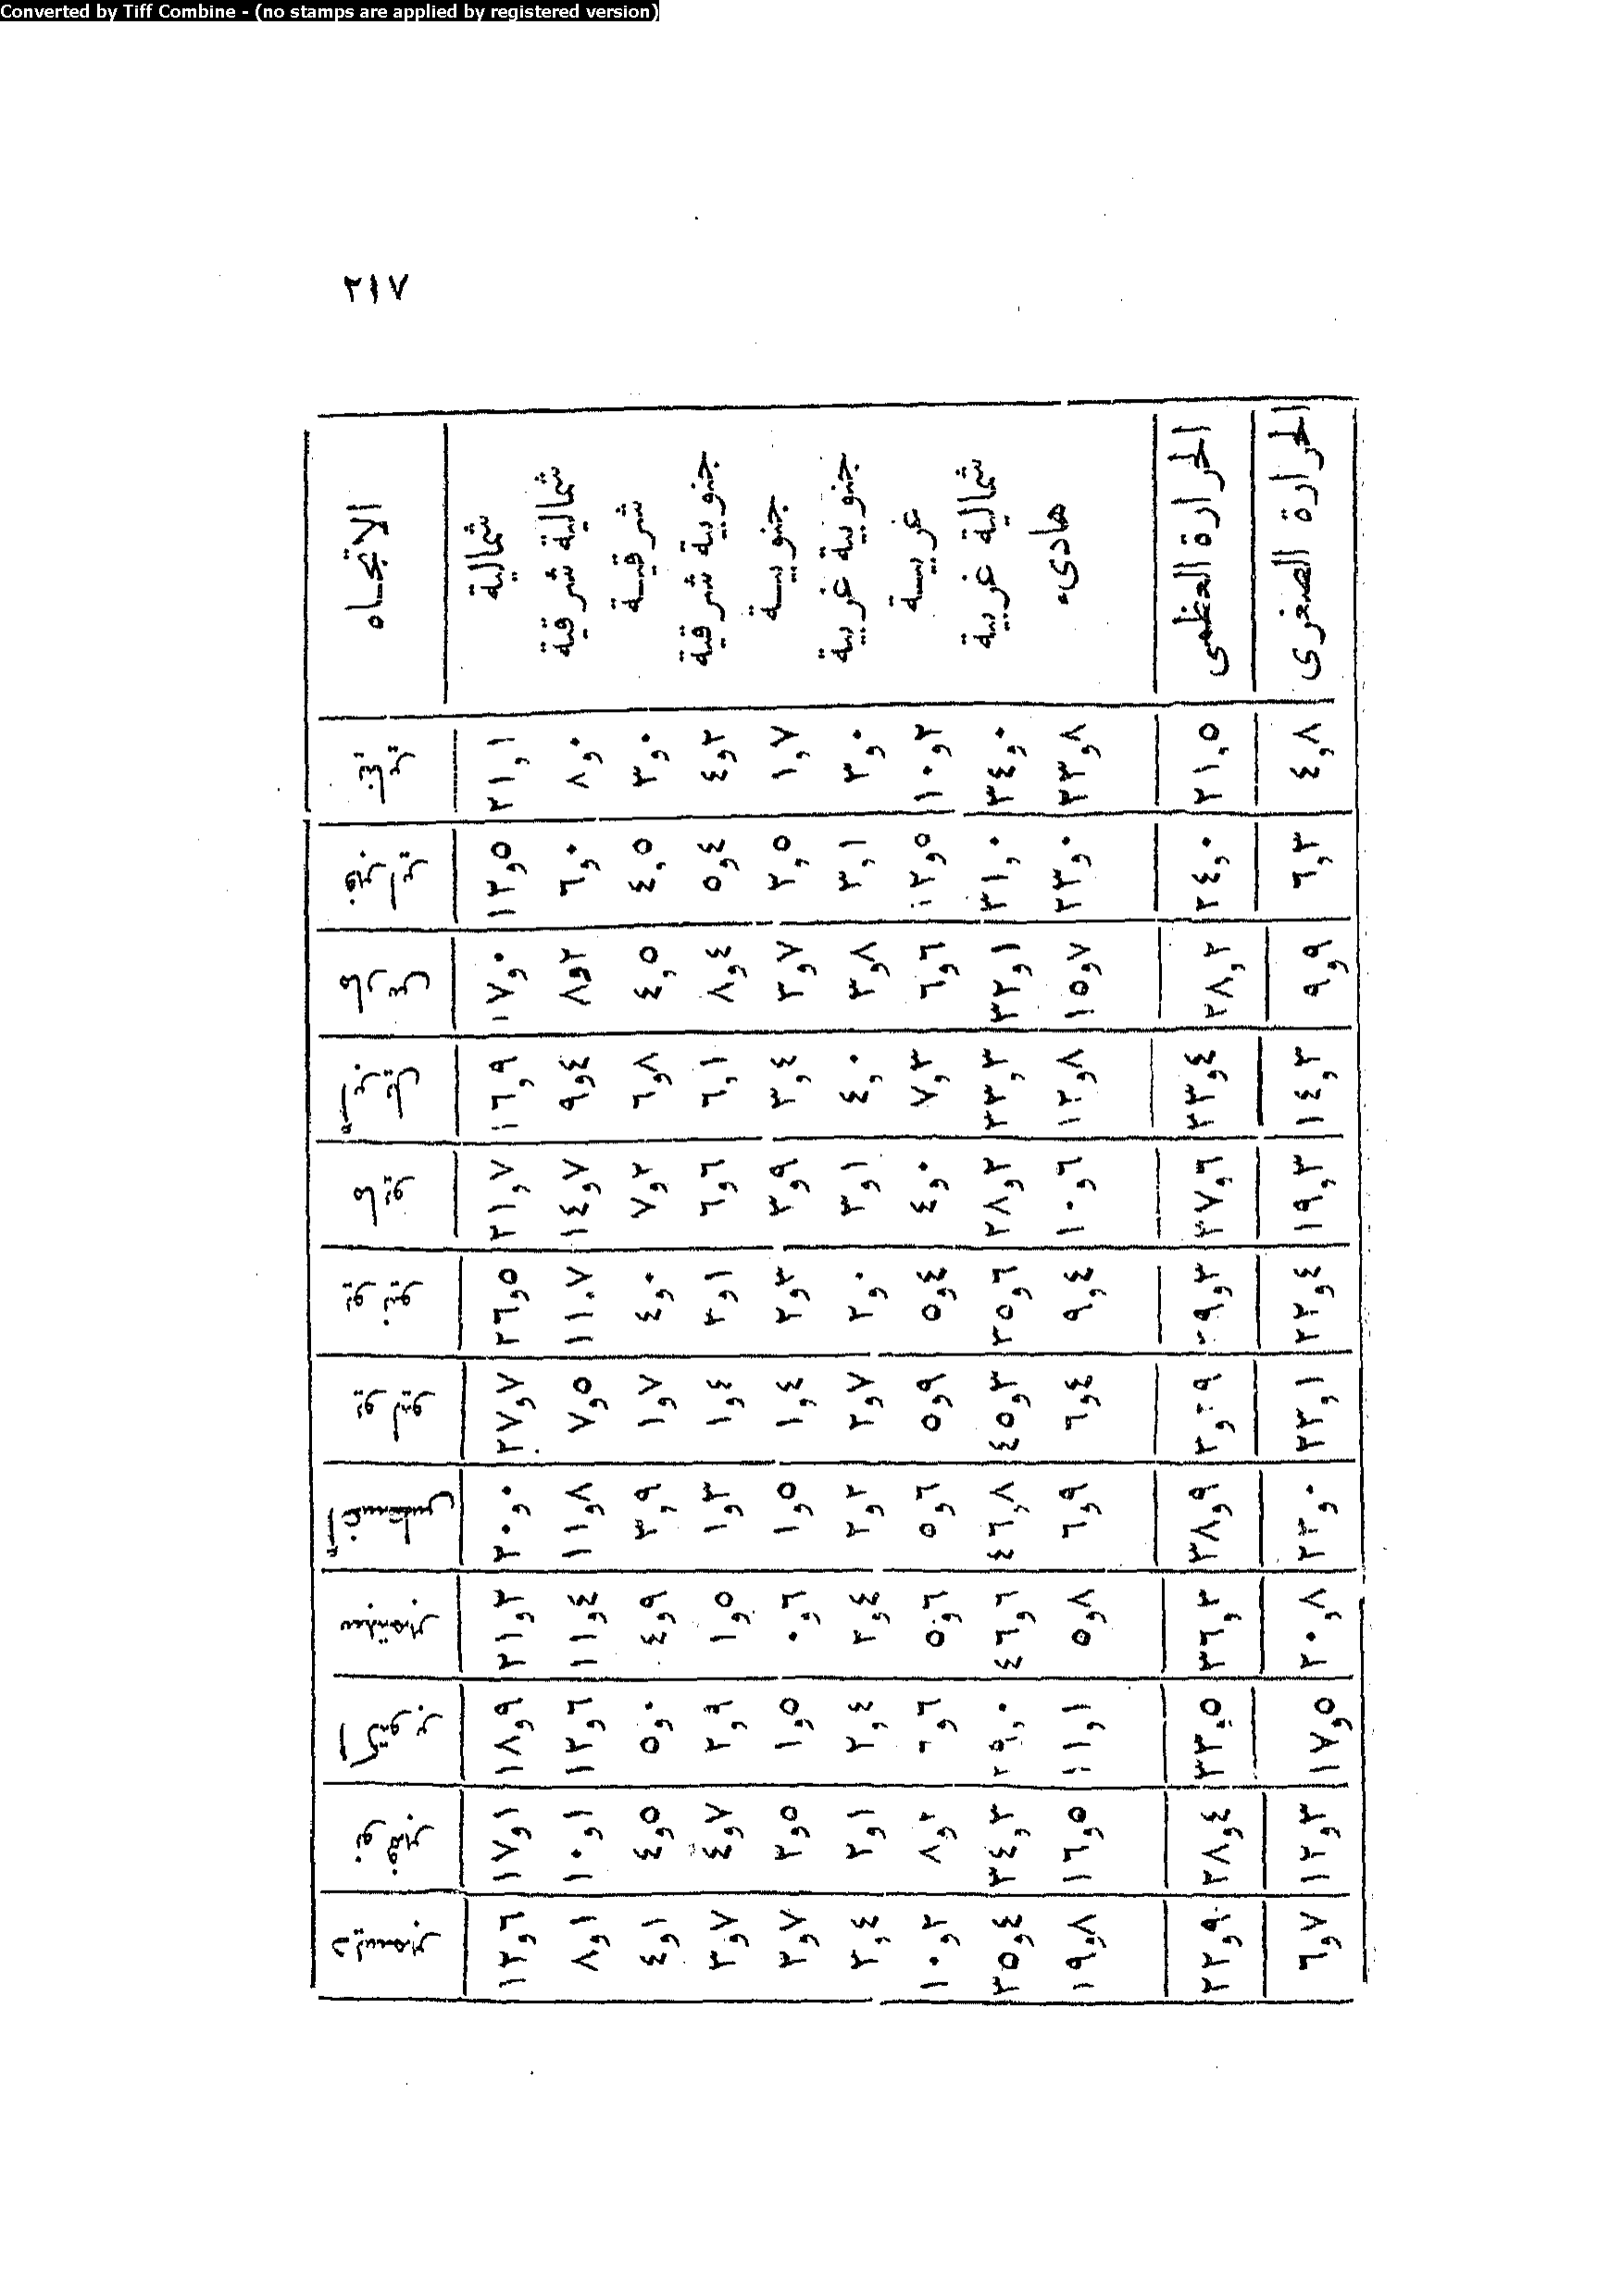 Converted by Tiff Combine - (no stamps are applied by registered version)
٢١٧
الاتجاه يناير فبراير مارس أبريل مايو يونيو يوليو أغسطس سبتمبر أكتوبر نوفمبر ديسمبر
شمالية ٢١,١ ١٢,٥ ١٧,٠ ١٦,٩ ٢١,٧ ٢٦,٥ ٢٧,٧ ٢٠,٠ ٢١,٢ ١٨,٩ ١٧,١ ١٢,٦
شمالية شرقية ٨,٠ ٦,٠ ٨,٢ ٩,٤ ١٤,٧ ١١.٧ ٧,٥ ١١,٨ ١١,٤ ١٢,٦ ١٠,١ ٨,١
شرقية ٣,٠ ٤,٥ ٤,٥ ٦,٨ ٧,٢ ٤,٠ ١,٧ ٣,٩ ٤,٩ ٥,٠ ٤,٥ ٤,١
جنوبية شرقية ٤,٢ ٥,٤ ٨,٤ ٦,١ ٦,٦ ٣,١ ١,٤ ١,٣ ١,٥ ٢,٩ ٤,٧ ٣,٧
جنوبية ١,٧ ٢,٥ ٣,٧ ٣,٤ ٣,٩ ٢,٣ ١,٤ ١,٥ ٠,٦ ١,٥ ٢,٥ ٢,٧
جنوبية غربية ٣,٠ ٣,١ ٣,٨ ٤,٠ ٣,١ ٢,٠ ٢,٧ ٢,٢ ٢,٤ ٢,٤ ٢,١ ٣,٤
غربية ١٠,٢ ١٢,٥ ٦,٦ ٧,٣ ٤,٠ ٥,٤ ٥,٩ ٥,٦ ٥,٦ ٦,٦ ٨,٢ ١٠,٢
شمالية غربية ٢٤,٠ ٣١,٠ ٣٢,١ ٣٣,٣ ٢٨,٢ ٣٥,٦ ٤٥,٣ ٤٦,٨ ٤٦,٦ ٣٩,٠ ٣٤,٣ ٣٥,٤
هادىء ٢٣,٨ ٢٣,٠ ١٥,٧ ١٢,٨ ١٠,٦ ٩,٤ ٦,٤ ٦,٩ ٥,٨ ١١,١ ١٦,٥ ١٩,٨
الحرارة العظمى ٢١,٥ ٢٤,٠ ٢٨,٢ ٣٣,٤ ٣٧,٦ ٣٩,٣ ٣٨,٩ ٣٦,٢ ٣٣,٥ ٢٨,٤ ٢٢,٩
الحرارة الصغرى ٤,٨ ٦,٣ ٩,٩ ١٤,٣ ١٩,٣ ٢٢,٤ ٢٣,١ ٢٣,٠ ٢٠,٨ ١٧,٥ ١٢,٣ ٦,٧